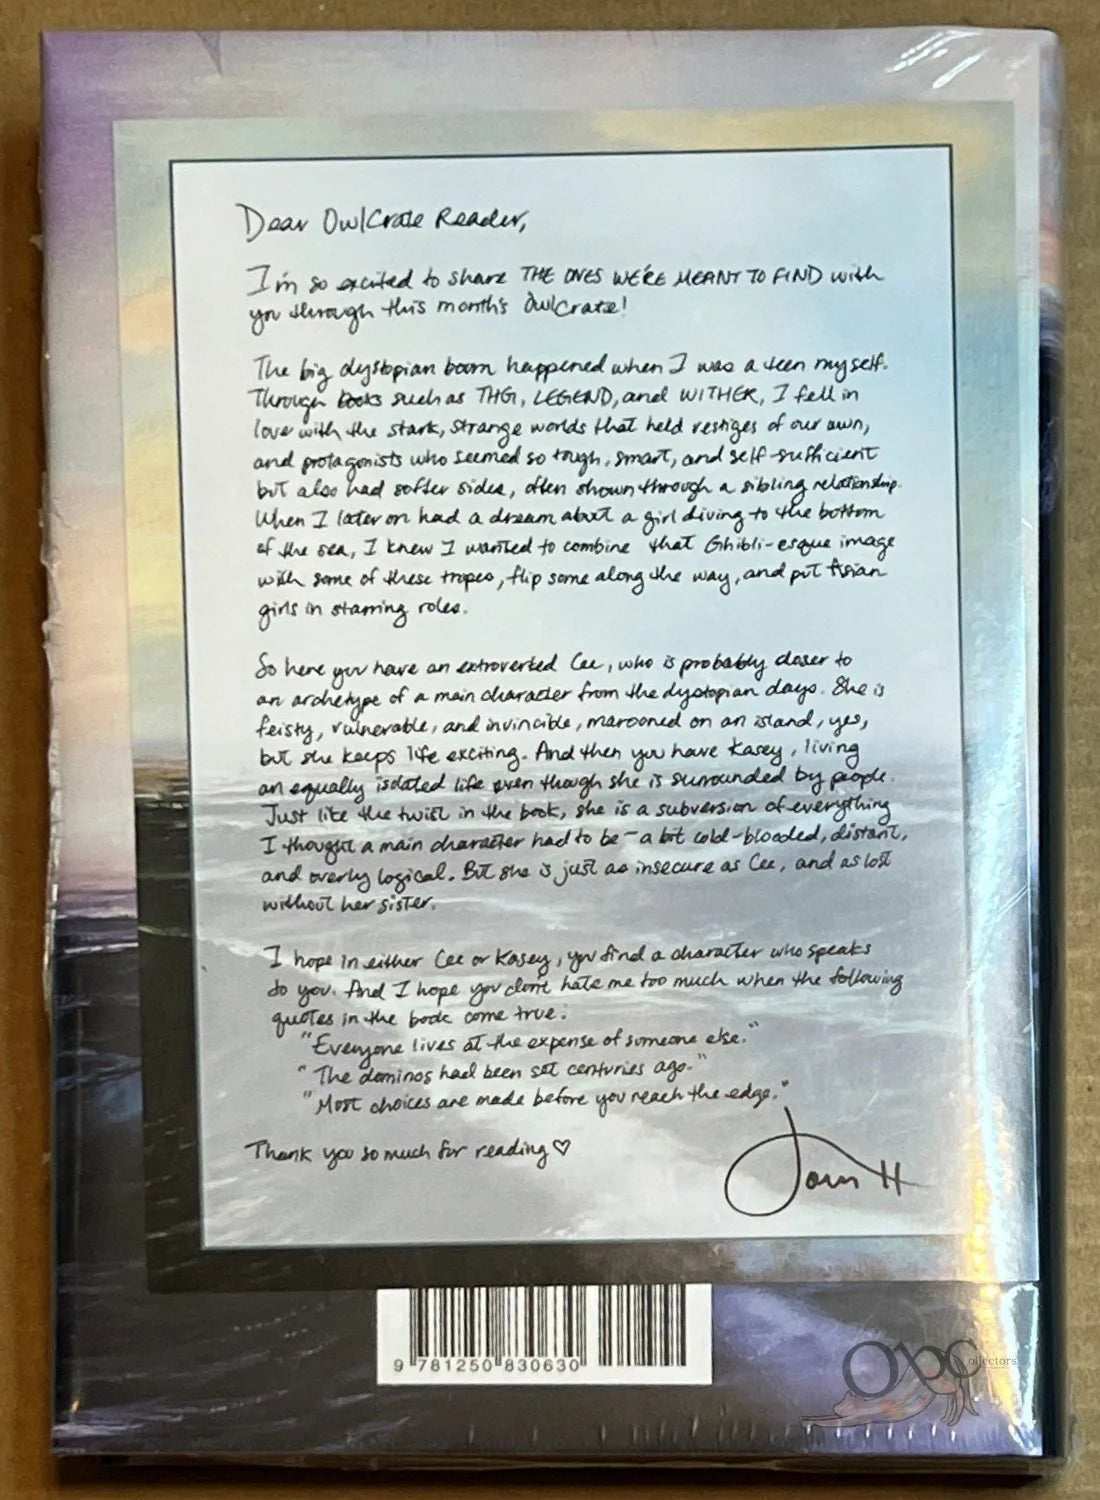 Dear OwlCrate Reader,
I'm so excited to share THE ONES WE'RE MEANT TO FIND with
you through this month's OwlCrate!
The big dystopian boom happened when I was a teen myself.
Through books such as THG, LEGEND, and WITHER, I fell in
love with the stark, strange worlds that held vestiges of our own,
and protagonists who seemed so tough, smart, and self-sufficient
but also had softer sides, often shown through a sibling relationship.
When I later on had a dream about a girl diving to the bottom
of the sea, I knew I wanted to combine that Ghibli-esque image
with some of these tropes, flip some along the way, and put Asian
girls in starring roles.
So here you have an extroverted Cee, who is probably closer to
an archetype of a main character from the dystopian days. She is
feisty, vulnerable, and invincible, marooned on an island, yes,
but she keeps life exciting. And then you have Kasey, living
an equally isolated life even though she is surrounded by people.
Just like the twist in the book, she is a subversion of everything
I thought a main character had to be – a bit cold-blooded, distant,
and overly logical. But she is just as insecure as Cee, and as lost
without her sister.
I hope in either Cee or Kasey, you find a character who speaks
to you. And I hope you don't hate me too much when the following
quotes in the book come true:
"Everyone lives at the expense of someone else."
"The dominos had been set centuries ago."
"Most choices are made before you reach the edge."
Thank you so much for reading ♡
Joan H
9 781250 830630
OPC ollectors